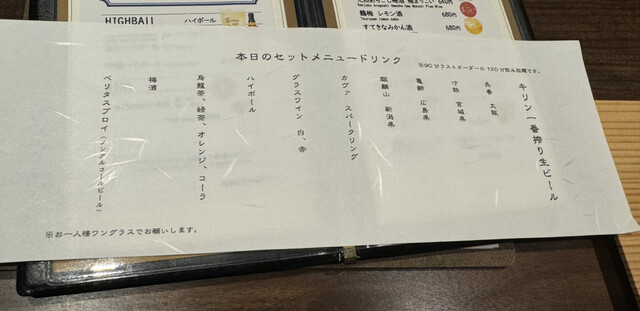 HIGHBALL ハイボール
640円
鶴梅 レモン酒 680円
すてきなみかん酒 680円
本日のセットメニュードリンク
※90分ラストオーダーの120分飲み放題です。
キリン一番搾り生ビール
呉春 大阪
宮城県
亀齢 広島県
麒麟山 新潟県
カヴァ スパークリング
グラスワイン 白、赤
ハイボール
烏龍茶、緑茶、オレンジ、コーラ
梅酒
ベリタスブロイ（ノンアルコールビール）
※お一人様ワングラスでお願いします。